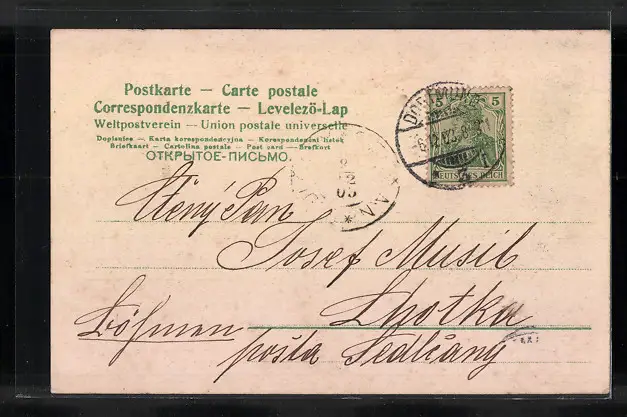 Postkarte — Carte postale
Correspondenzkarte — Levelezö-Lap
Weltpostverein — Union postale universelle
Dopisnice — Karta korespondencyjna — Korespondenční listek
Briefkaart — Cartolina postale — Post card — Brefkort
ОТКРЫТОЕ-ПИСЬМО.
DORTMUND
5 5
DEUTSCHES REICH
Ctěný Pan
Josef Musil
Lhotka
Böhmen
pošta Sedlčany